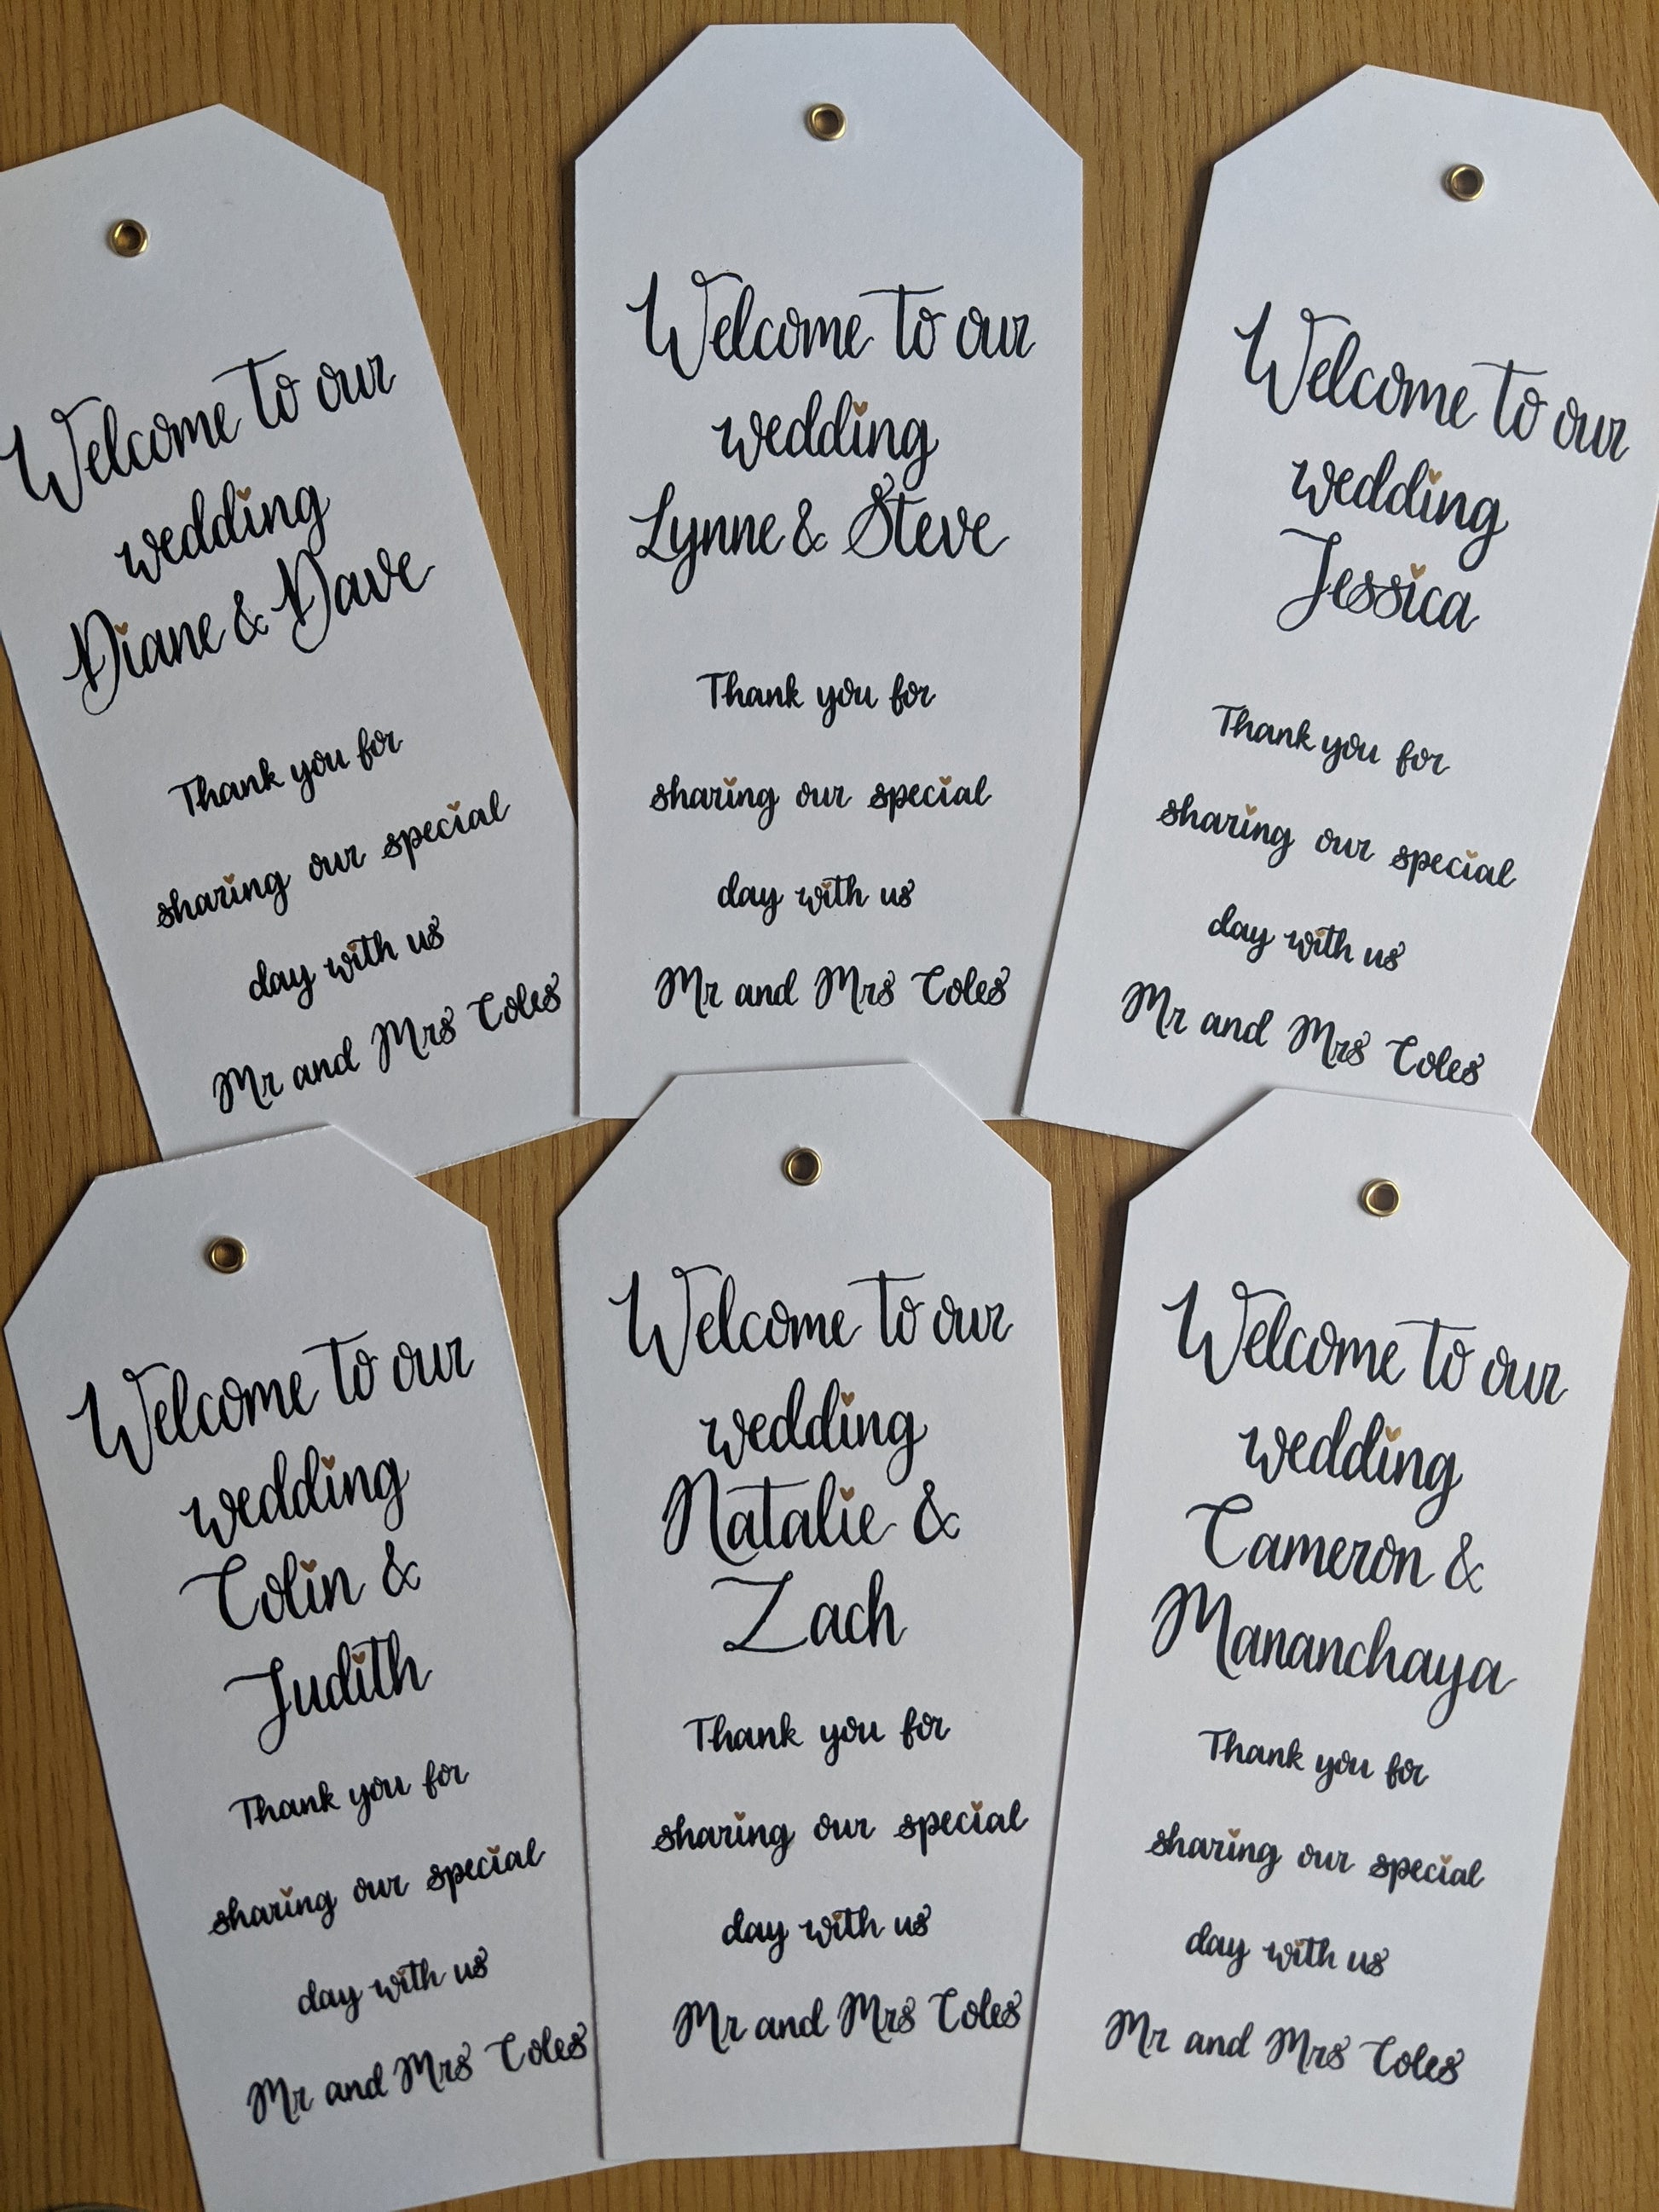 Welcome to our
wedding
Diane & Dave
Thank you for
sharing our special
day with us
Mr and Mrs Coles
Welcome to our
wedding
Lynne & Steve
Thank you for
sharing our special
day with us
Mr and Mrs Coles
Welcome to our
wedding
Jessica
Thank you for
sharing our special
day with us
Mr and Mrs Coles
Welcome to our
wedding
Colin &
Judith
Thank you for
sharing our special
day with us
Mr and Mrs Coles
Welcome to our
wedding
Natalie &
Zach
Thank you for
sharing our special
day with us
Mr and Mrs Coles
Welcome to our
wedding
Cameron &
Mananchaya
Thank you for
sharing our special
day with us
Mr and Mrs Coles